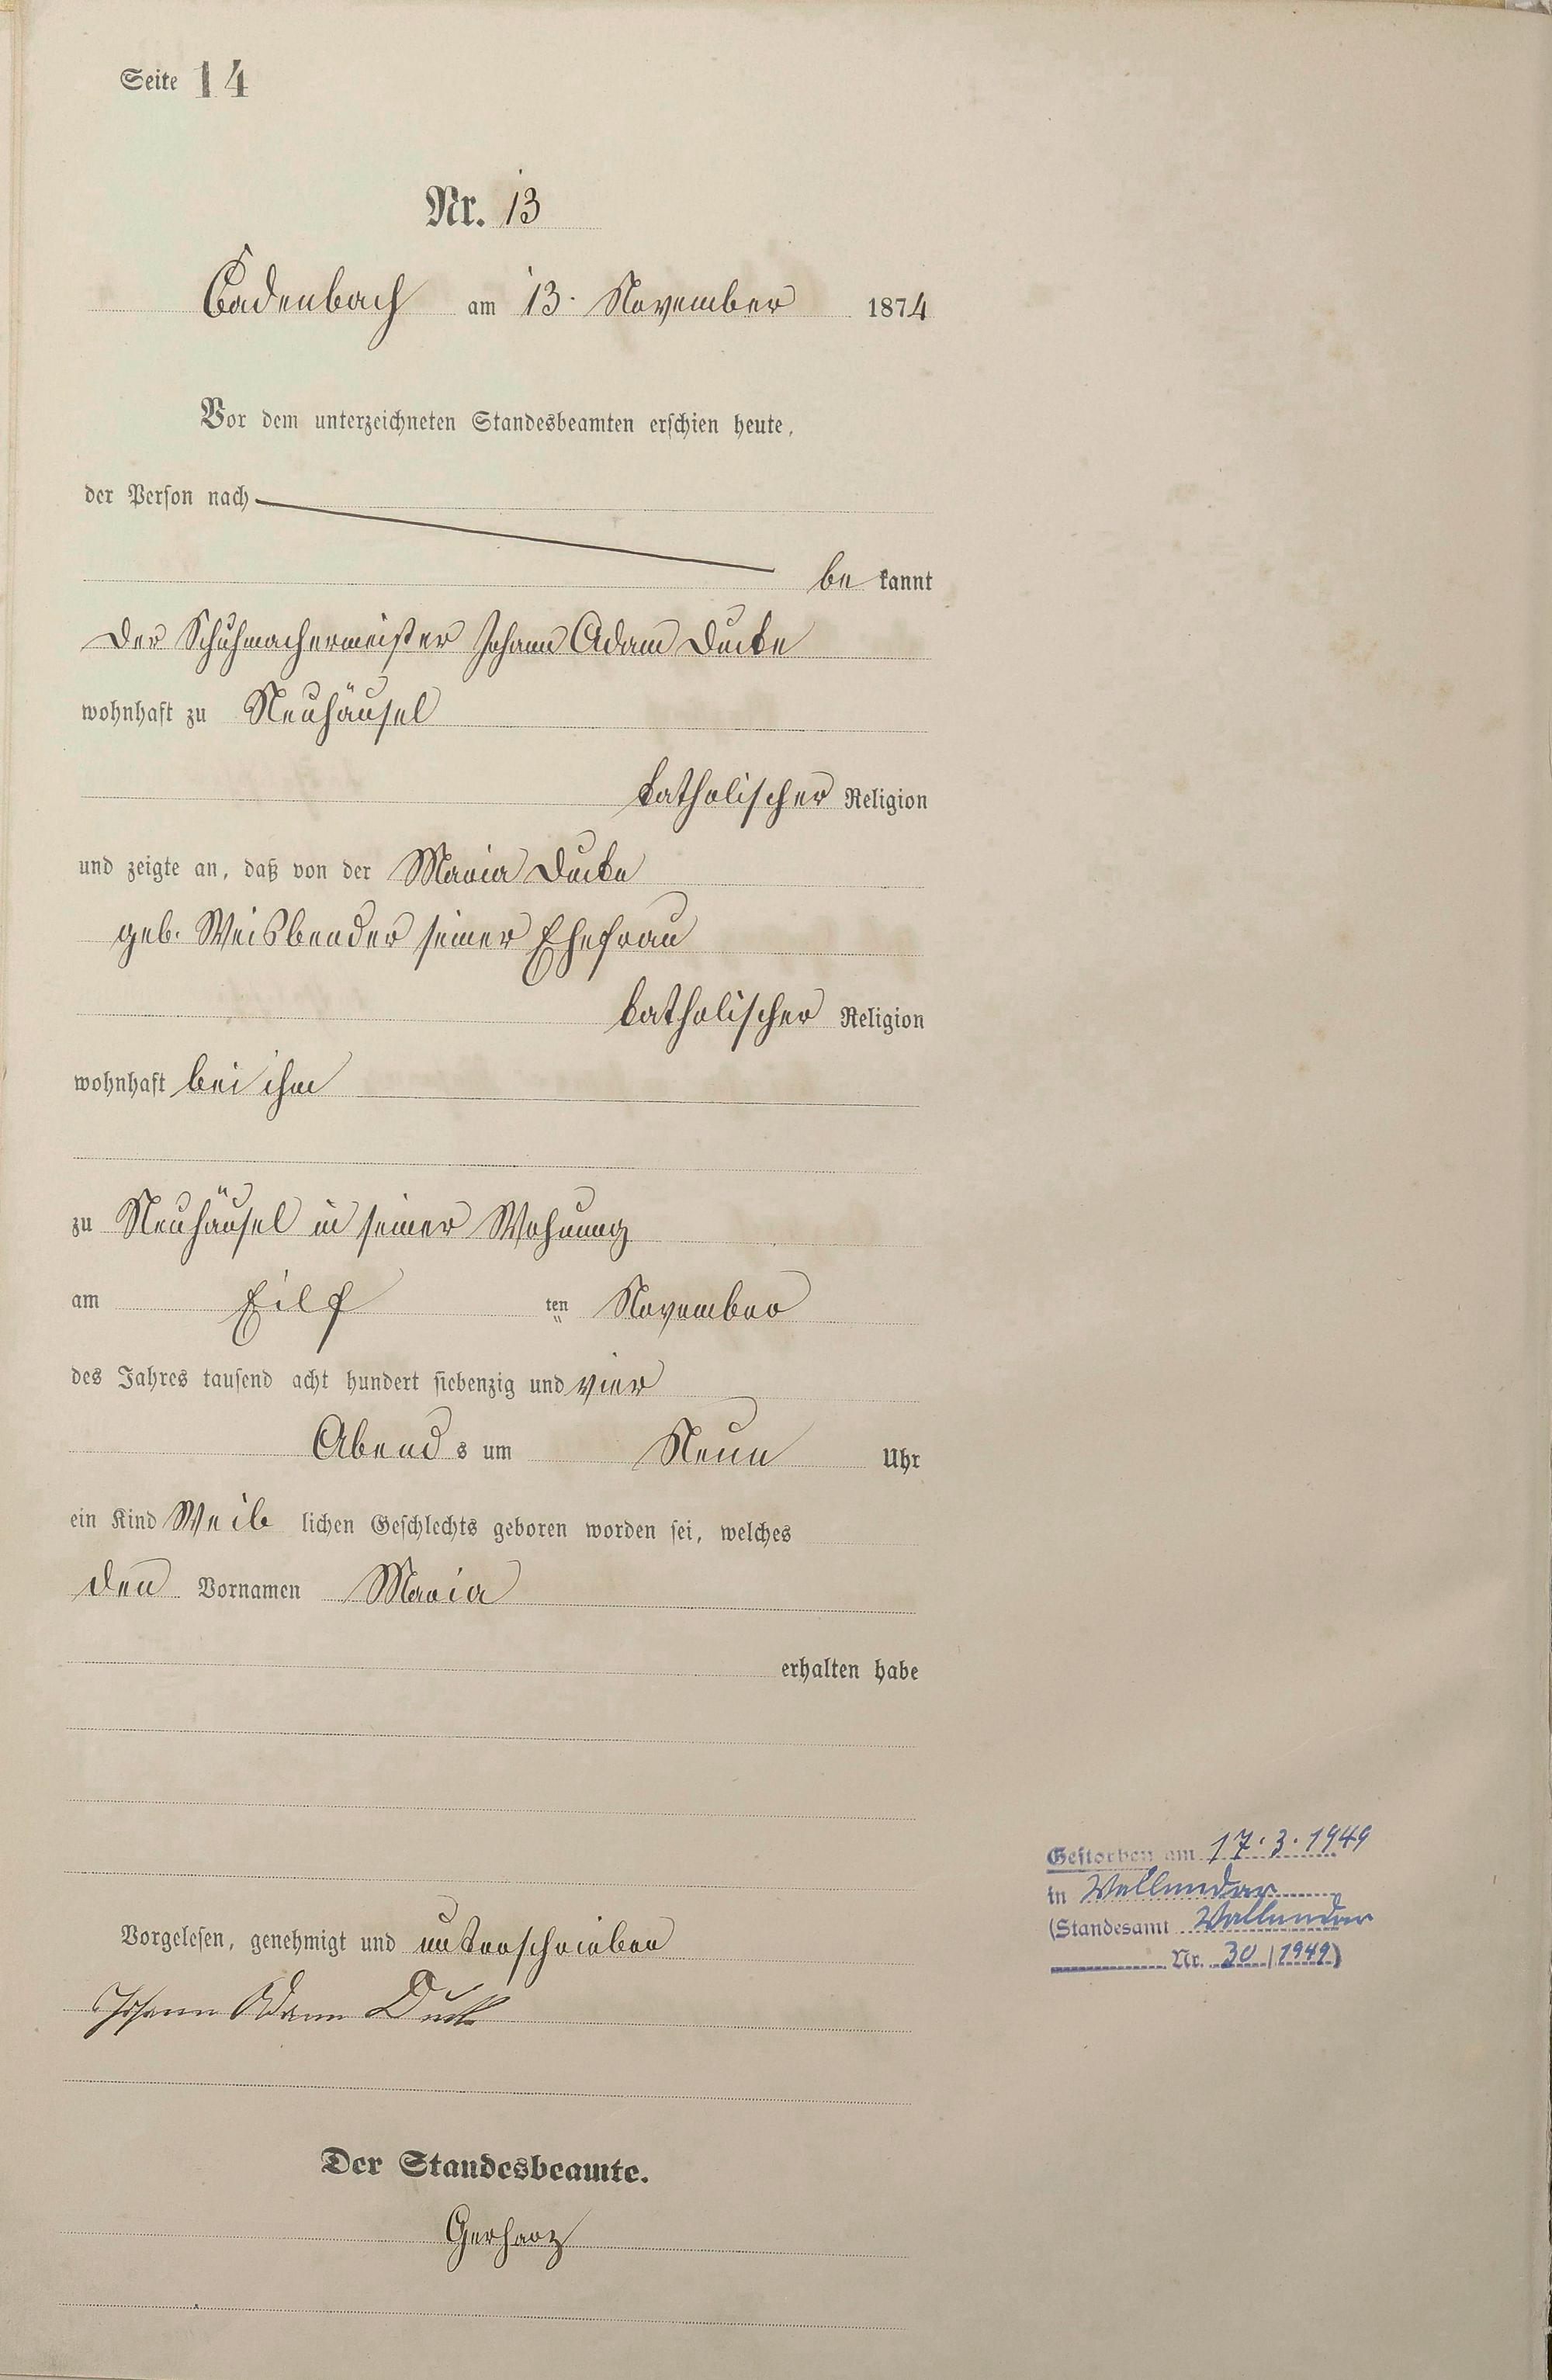 Seite 14
Nr. 13
Cadenbach am 13. November 1874
Vor dem unterzeichneten Standesbeamten erschien heute,
der Person nach
be kannt
der Schuhmachermeister Johann Adam Ducke
wohnhaft zu Neuhäusel
katholischer Religion
und zeigte an, daß von der Maria Ducke
geb. Weisbender seiner Ehefrau
katholischer Religion
wohnhaft bei ihm
zu Neuhäusel in seiner Wohnung
am Eilf ten November
des Jahres tausend acht hundert siebenzig und vier
Abend s um Neun Uhr
ein Kind Weib lichen Geschlechts geboren worden sei, welches
den Vornamen Maria
erhalten habe
Vorgelesen, genehmigt und unterschrieben
Johann Adam Duck
Der Standesbeamte.
Gerharz
Gestorben am 17.3.1949
in Vallendar
(Standesamt Vallendar
Nr. 30/1949)